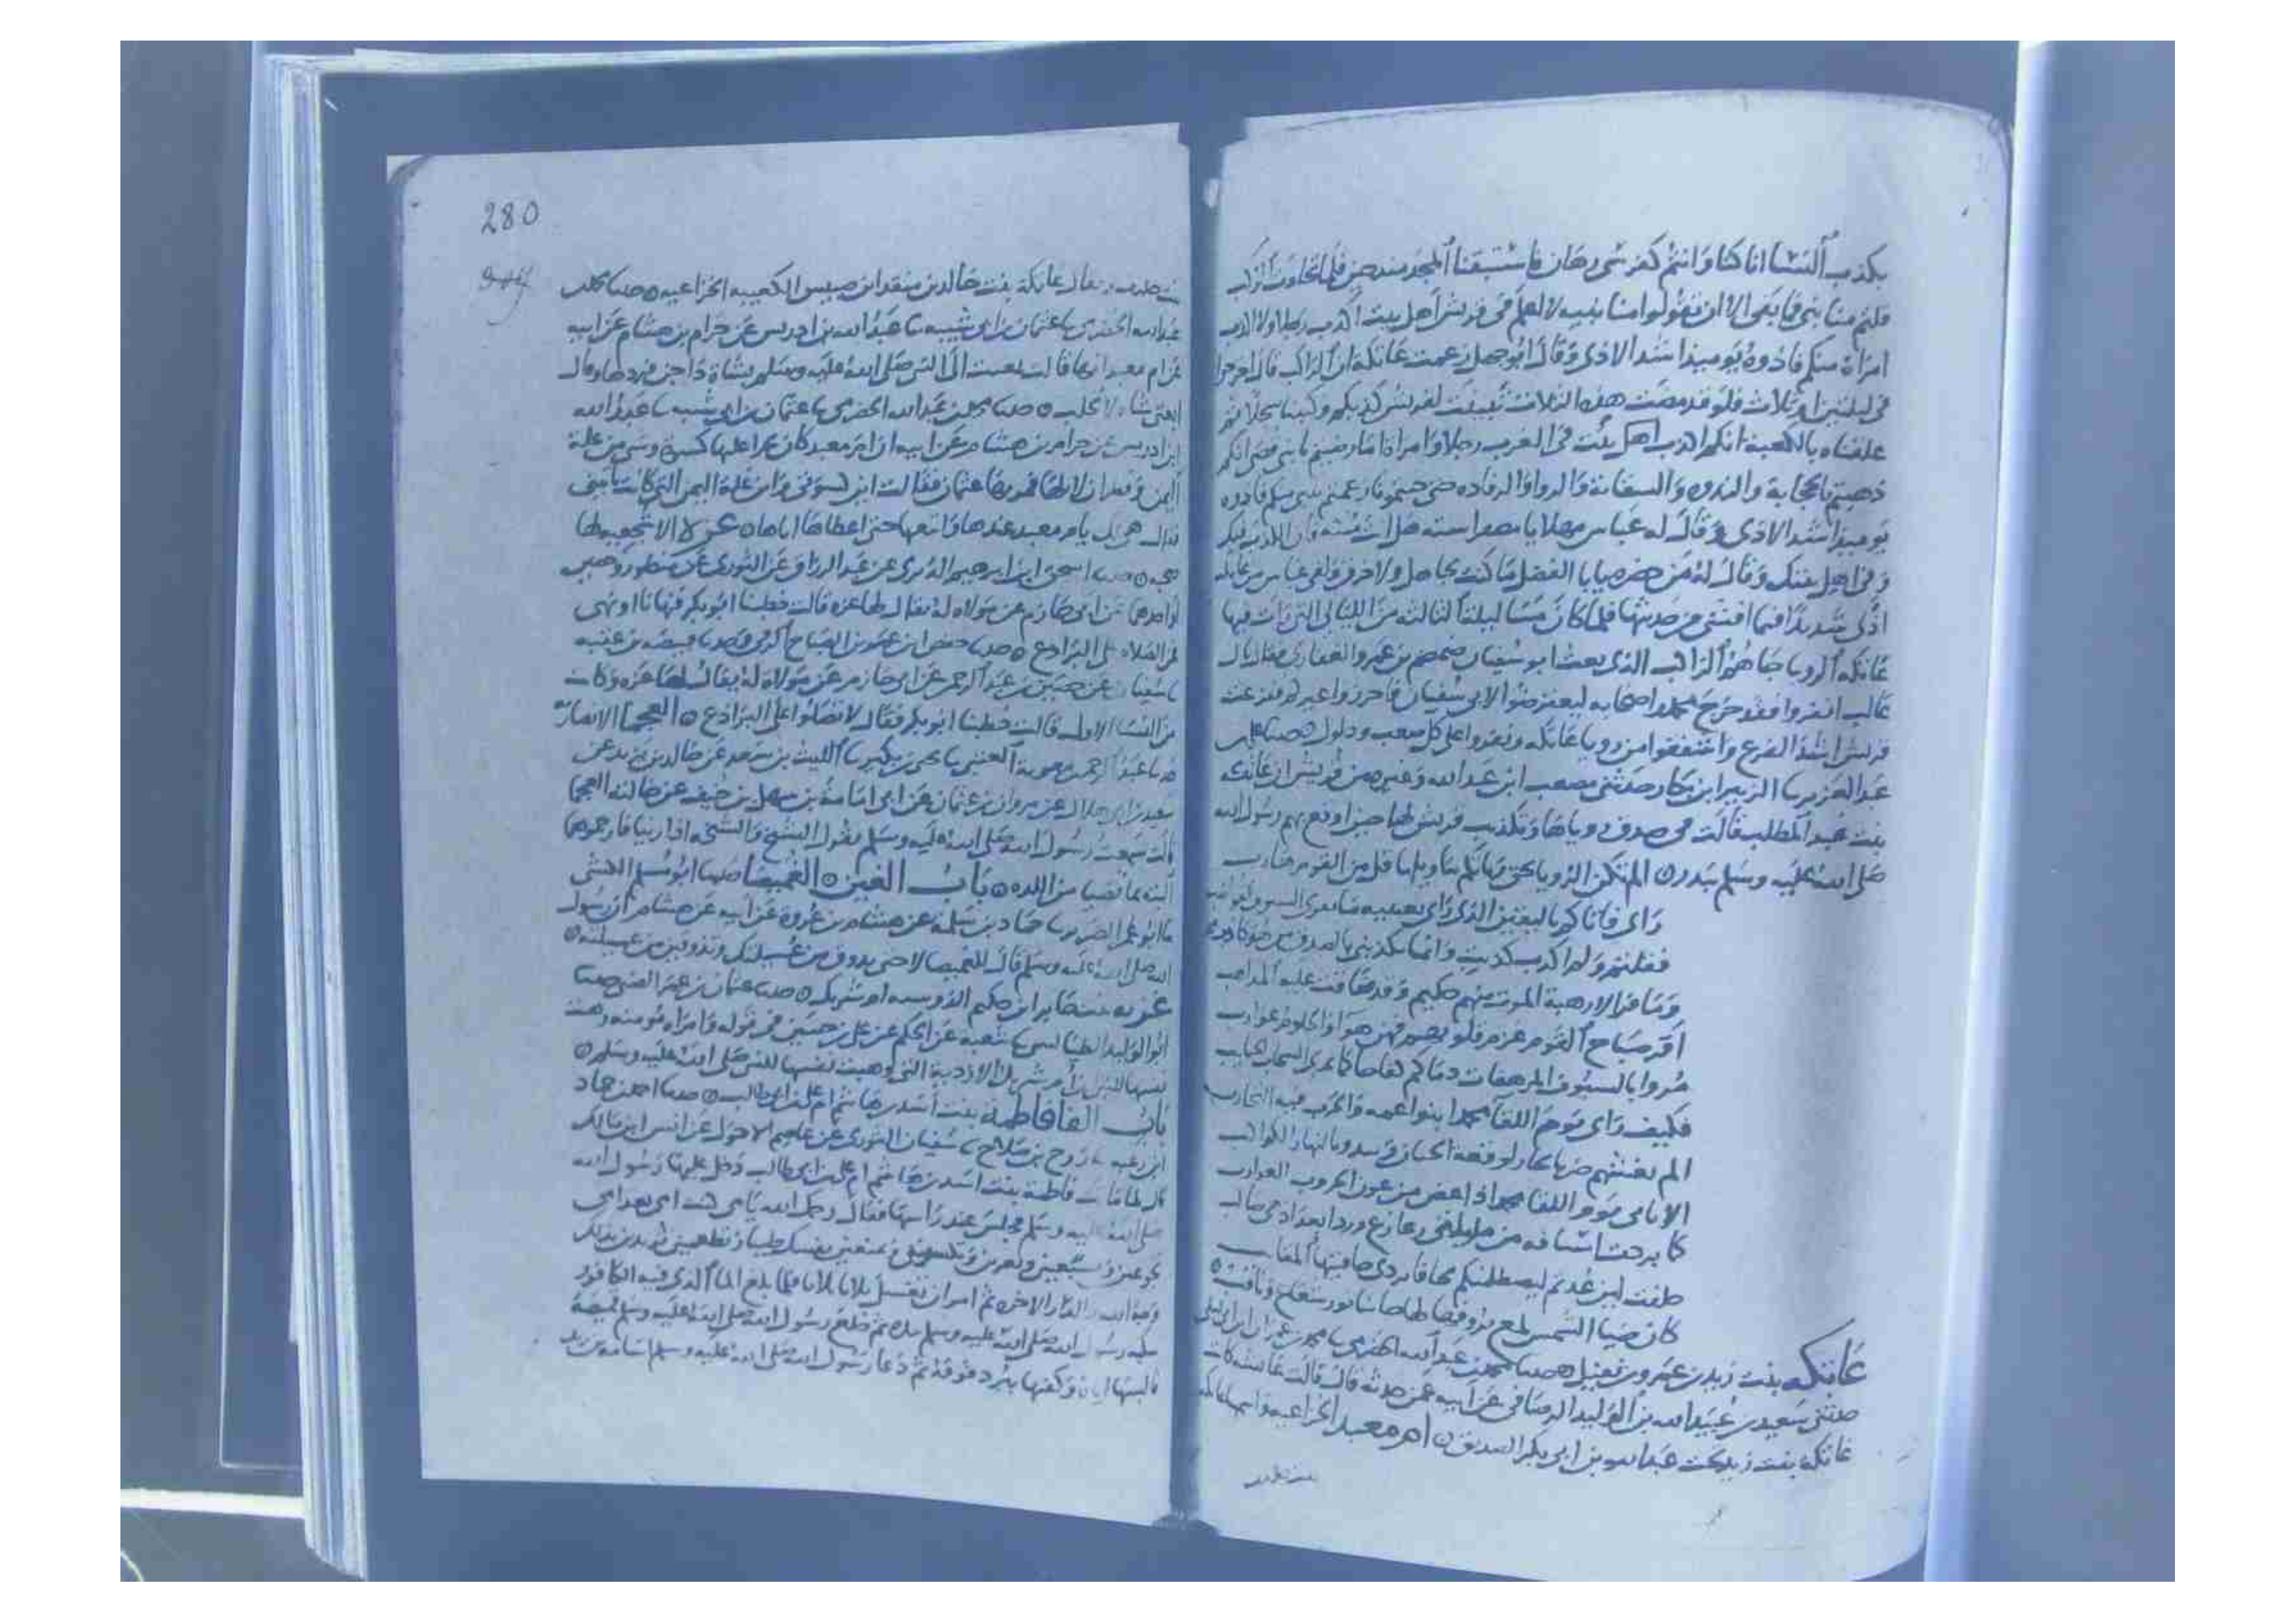 بكذب النسا انا كنا وانتم كفرسي رهان فاستبقنا المجد منذ حين فلما تحاذت الركب
قلتم منا نبي فما بقي الا ان تقولوا منا نبيه لا اعلم في قريش اهل بيت اكذب رجلا ولا اكذب
امراة منكم فاذوه يوميذ اشد الاذى وقال ابو جهل زعمت عاتكة ان الراكب قال اخرجوا
في ليلتين او ثلاث فلو قد مضت هذه الثلاث تبينت لقريش كذبكم وكتبنا سجلا ثم
علقناه بالكعبة انكم اكذب اهل بيت في العرب رجلا وامراة اما رضيتم يا بني قصي انكم
ذهبتم بالحجابة والندوه والسقاية واللوا والرفاده حتى جيتمونا زعمتم بنبي منكم فاذوه
يوميذ اشد الاذى وقال له عباس مهلا يا مصفر استه هل انت منته فان الكذب فيك
وفي اهل بيتك وقال له من حضره يا با الفضل ما كنت بجاهل ولا خرق ولقي عباس من عاتكه
اذى شديدا فيما افشى من حديثها فلما كان مسا ليلة الثالثه من الليالي التي رات فيها
عاتكه الرويا جاهم الراكب الذي بعث ابو سفيان ضمضم بن عمرو الغفاري فقال يال
غالب انفروا فقد خرج محمد واصحابه ليعترضوا لابي سفيان فاحرزوا عيركم ففزعت
قريش اشد الفزع واشفقوا من رويا عاتكه ونفروا على كل صعب وذلول حدثنا علي بن
عبد العزيز ثنا الزبير ابن بكار حدثني مصعب ابن عبد الله وغيره من قريش ان عاتكه
بنت عبد المطلب قالت في صدق روياها وتكذيب قريش لها حين اوقع بهم رسول الله
صلى الله عليه وسلم ببدر الم تكن الرويا بحق ويأتكم بتاويلها فل من القوم هارب
راى فاتاكم باليقين الذي راى بعينيه ما تفري السيوف القواضب
فقلتم ولم اكذب كذبت وانما يكذبني بالصدق من هو كاذب
وما فر الا رهبة الموت منهم حكيم وقد ضاقت عليه المذاهب
اقر صباح القوم عزم قلوبهم فهن هوا والحلوم عوازب
مروا بالسيوف المرهفات دماكم كفاحا كما تمري السحاب الجنايب
فكيف راى يوم اللقا محمدا بنو عمه والحرب فيه التجارب
الم يغشهم ضربا يحار لوقعه الجبان وتبدو بالنهار الكواكب
الا بابي يوم اللقا محمدا اذا عض من عون الحروب الغوارب
كما بردت اسيافه من مليلتي
حلفت لين عدتم ليصطلمنكم بجاوا تردي حافتيها المقانب
كان ضيا الشمس لمع بروقها لها جانبا نور شعاع وثاقب
عاتكه بنت زيد بن عمرو بن نفيل حدثنا محمد بن عبد الله الحضرمي ثنا محمد بن عمران ابن ابي ليلى
حدثني سعيد بن عبيد الله بن الوليد الوصافي عن ابيه عمن حدثه قال قالت عايشه كانت
عاتكة بنت زيد تحت عبد الله بن ابي بكر الصديق ام معبد الخزاعيه واسمها عاتكه
بنت خالد
280
بنت خالد ويقال عاتكة بنت خالد بن منقذ ابن حبيس الكعبيه الخزاعيه حدثنا محمد بن
عبد الله الحضرمي ثنا عثمان بن ابي شيبه ثنا عبد الله بن ادريس عن حزام بن هشام عن ابيه
عن ام معبد انها قالت بعثت الى النبي صلى الله عليه وسلم بشاة داجن فردها وقال
ابغني شاه لا تحلب حدثنا محمد بن عبد الله الحضرمي ثنا عثمان بن ابي شيبه ثنا عبد الله
ابن ادريس عن حزام بن هشام عن ابيه ان ام معبد كان يجرا عليها كسوة وشي من غلة
اليمن وقطران لابلها فمر بها عثمان فقالت اين كسوتي واين غلة اليمن التي كانت تاتيني
فقال هي لك يا ام معبد عندنا واتبعها حتى اعطاها اياها
صحبه حدثنا اسحق ابن ابرهيم الدبري عن عبد الرزاق عن الثوري عن منصور وحصين
او احدهما عن ابي حازم عن مولاه له يقال لها عزه قالت خطبنا ابو بكر فنهانا او نهى
عن الصلاه على البراذع حدثنا حفص ابن عمر بن الصباح الرقي ثنا قبيصه بن عقبه
ثنا سفيان عن حصين بن عبد الرحمن عن ابي حازم عن مولاة له يقال لها عزه وكانت
من النسا الاول قالت خطبنا ابو بكر فقال لا تصلوا على البراذع العجما الانصارية
حدثنا عبد الرحمن بن معوية العتبي ثنا يحيى بن بكير ثنا الليث بن سعد عن خالد بن يزيد عن
سعيد بن ابي هلال عن مروان بن عثمان عن ابي امامة بن سهل بن حنيف عن خالته العجما
قالت سمعت رسول الله صلى الله عليه وسلم يقول الشيخ والشيخه اذا زنيا فارجموهما
البته بما قضيا من اللذه باب الغين الغميصا حدثنا ابو مسلم الكشي
ثنا ابو عمر الضرير ثنا حماد بن سلمة عن هشام بن عروة عن ابيه عن هشام ان رسول
الله صلى الله عليه وسلم قال للغميصا لا حتى يذوق من عسيلتك وتذوقين من عسيلته
غزيه بنت جابر ابن حكيم الدوسيه ام شريك حدثنا عثمان بن عمر الضبي حدثنا
ابو الوليد الطيالسي ثنا شعبه عن الحكم عن علي بن حسين في قوله وامراه مومنه وهبت
نفسها للنبي ان ام شريك الازدية التي وهبت نفسها للنبي صلى الله عليه وسلم
باب الفا فاطمة بنت اسد بن هاشم ام علي بن ابي طالب حدثنا احمد بن حماد
ابن زغبه ثنا روح بن صلاح ثنا سفيان الثوري عن عاصم الاحول عن انس ابن مالك
قال لما ماتت فاطمة بنت اسد بن هاشم ام علي بن ابي طالب دخل عليها رسول الله
صلى الله عليه وسلم فجلس عند راسها فقال رحمك الله يا امي كنت امي بعد امي
تجوعين وتشبعيني وتعرين وتكسونني وتمنعين نفسك طيبا وتطعميني تريدين بذلك
وجه الله والدار الاخره ثم امر ان تغسل ثلاثا ثلاثا فلما بلغ الما الذي فيه الكافور
سكبه رسول الله صلى الله عليه وسلم بيده ثم خلع رسول الله صلى الله عليه وسلم قميصه
فالبسها اياه وكفنها ببرد فوقه ثم دعا رسول الله صلى الله عليه وسلم اسامه بن زيد